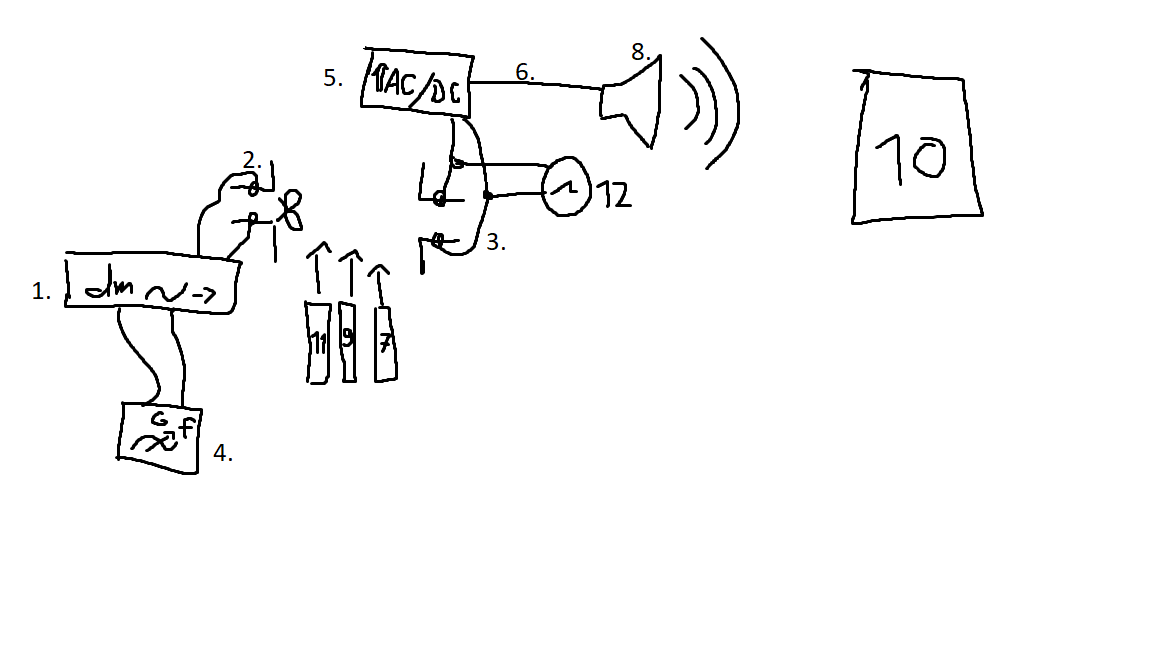 5.
⇑AC/DC
6.
8.
10
2.
12
3.
1.
dm ~ →
11
9
7
G
f
4.